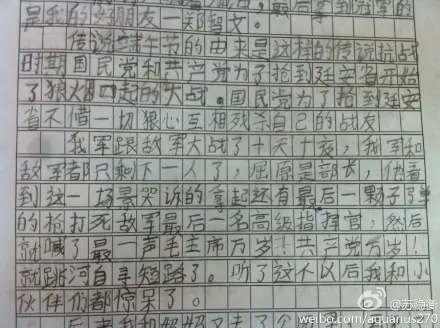 是我的好朋友一郑智文。
传说端午节的由来是这样的传说抗战
时期国民党和共产党为了抢到延安省开始
了狼烟四起的大战。国民党为了抢到延安
省不惜一切狠心互相残杀自己的战友
我军跟敌军大战了十天十夜，我军和
敌军都只剩下一人了，屈原是部长，他看
到这一场景哭诉的拿起还有最后一颗子弹
的枪打死敌军最后一名高级指挥官，然后
就喊了最一声毛主席万岁！共产党万岁！
就跳河自寻短路了。听了这个以后我和小
伙伴们都惊呆了。
@苏隐衡
weibo.com/aquarius270